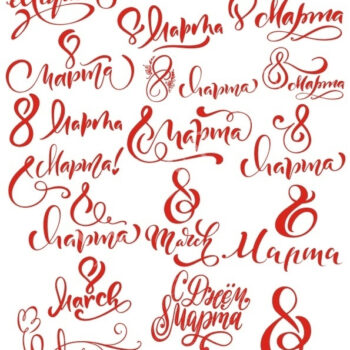 8 Марта
8 Марта
8 Марта
8 Марта
8 Марта
8 Марта
8 Марта
8 Марта
8 Марта!
8 Марта
8 Марта
8 March
8 Марта
8 March
С Днём
8 Марта
8